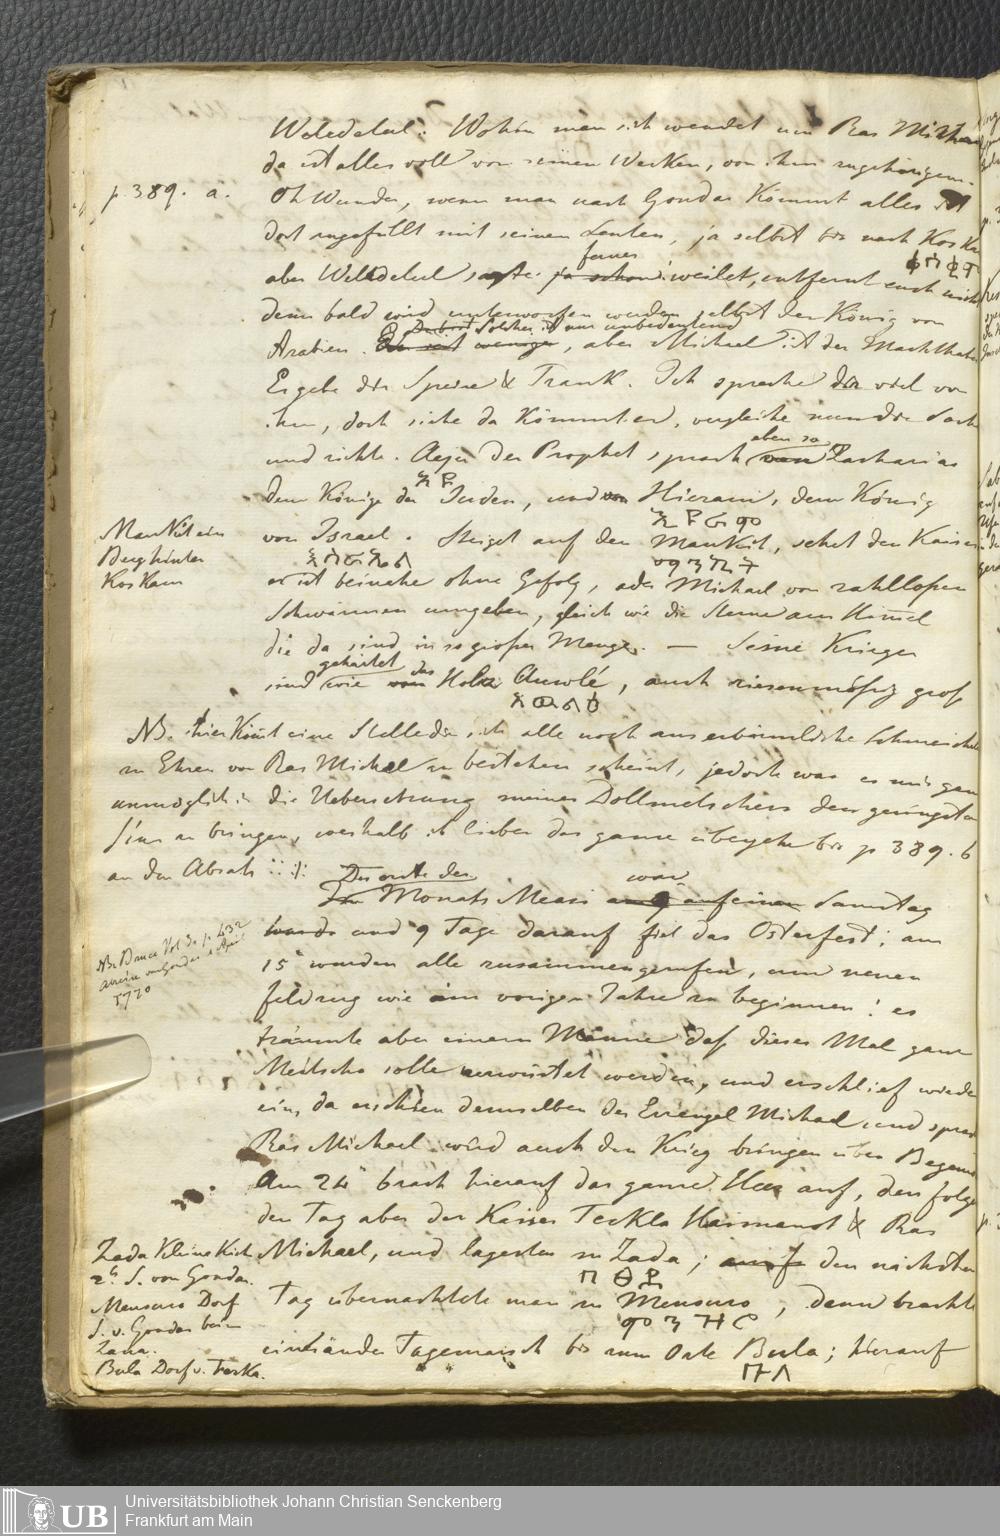 Weledeleul: Wohin man sich wendet um Ras Michael
da ist alles voll von seinen Werken, von ihm zugehörigem.
p. 389. a.
Oh Wunder, wenn man nach Gondar kömmt alles ist
dort angefüllt mit seinen Leuten, ja selbst bis nach Kos Kam
ferner
aber Weledeleul sagte: ja schon weilet, entfernt euch nicht
denn bald wird unterworfen werden selbst der König von
Arabien. , aber Michael ist der Machthaber
Er gebe dir Speise & Trank. Ich spreche dir viel von
ihm, doch siehe da kömmt er, vergleiche nun die Sache
eben so
und richte. der Prophet sprach Zacharias
dem Könige der Juden, und Hieram, dem König
Man Kit ein
Berg hinter
Kos Kam
von Israel. Steiget auf den Mankit, sehet den Kaiser
er ist beinahe ohne Gefolg, aber Michael von zahllosen
Schwärmen umgeben, gleich wie die Sterne am Himel
die da sind in so großer Menge. — Seine Krieger
gehärtet das
sind wie Holz Auwlé, auch riesenmäßig groß
NB. hier kömt eine Stelle die sich alle noch aus erbärmliche Schmeichelei
zu Ehren von Ras Michael zu bestehen scheint, jedoch war es mir ganz
unmöglich in die Uebersetzung meines Dollmetschers den geringsten
Sinn zu bringen, weshalb ich lieber das ganze übergehe bis p 389. b
an den Absatz
Der erste des war
Monats Measi Samstag
und 9 Tage darauf fiel das Osterfest; am
NB. Bruce Vol 3. p. 432
1770
15 wurden alle zusammengerufen, um neuen
Feldzug wie im vorigen Jahre zu beginnen! es
träumte aber einem Manne daß dieses Mal ganz
Meitscha solle verwüstet werden, und er schlief wieder
ein, da erschien demselben der Erzengel Michael und sprach
Ras Michael wird auch den Krieg bringen über Begem
Am 24 brach hierauf das ganze Heer auf, den folgen
den Tag aber der Kaiser Teckla Haimanot & Ras
Zada kleine Kirch
2h S. von Gondar.
Michael, und lagerten zu Zada; den nächsten
Mensuro Dorf
S. v. Gondar beim
Zana.
Tag übernachtete man zu Mensuro, dann brachte
Bula Dorf v. Ferka.
ein händer Tagemarsch bis zum Orte Bula; hierauf
Universitätsbibliothek Johann Christian Senckenberg
Frankfurt am Main
UB